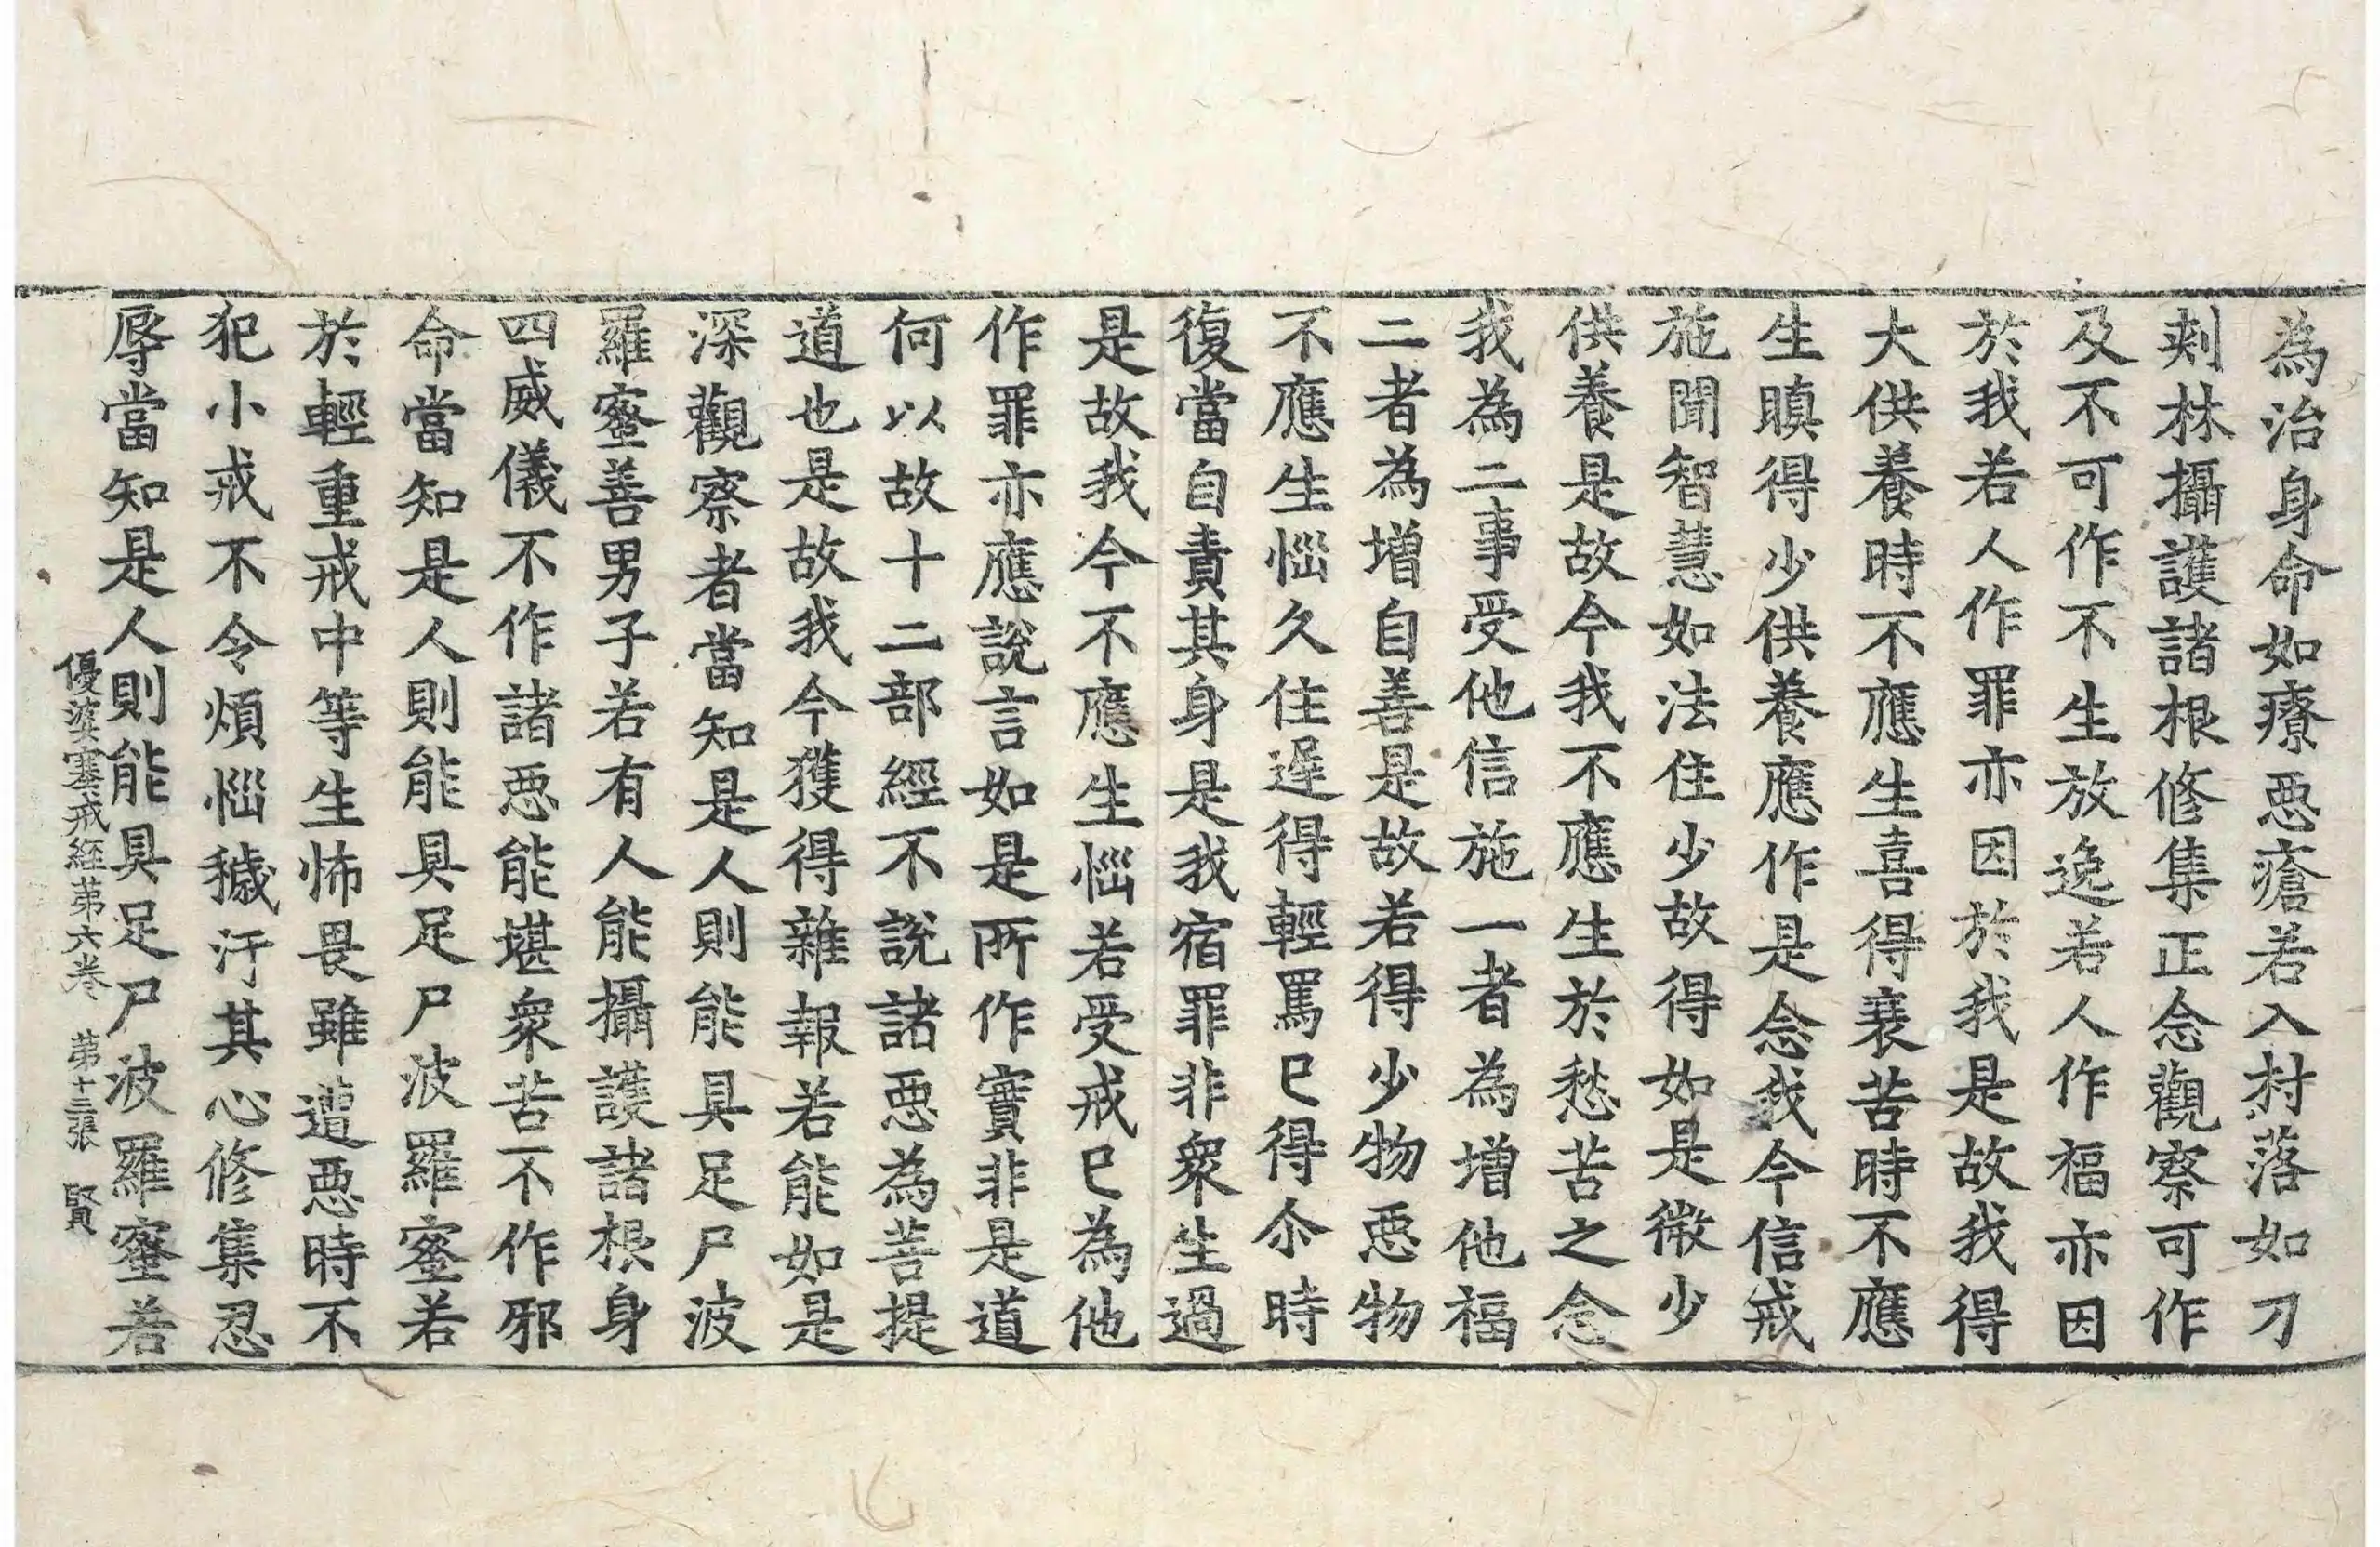 為治身命如療惡瘡若入村落如刀
刾林攝護諸根修集正念觀察可作
及不可作不生放逸若人作福亦因
於我若人作罪亦因於我是故我得
大供養時不應生喜得衰苦時不應
生瞋得少供養應作是念我今信戒
施聞智慧如法住少故得如是微少
供養是故今我不應生於愁苦之念
我為二事受他信施一者為增他福
二者為增自善是故若得少物惡物
不應生惱久住遲得輕罵已得尒時
復當自責其身是我宿罪非衆生過
是故我今不應生惱若受戒已為他
作罪亦應說言如是所作實非是道
何以故十二部經不說諸惡為菩提
道也是故我今獲得雜報若能如是
深觀察者當知是人則能具足尸波
羅蜜善男子若有人能攝護諸根身
四威儀不作諸惡能堪衆苦不作邪
命當知是人則能具足尸波羅蜜若
於輕重戒中等生怖畏雖遭惡時不
犯小戒不令煩惱穢汙其心修集忍
辱當知是人則能具足尸波羅蜜若
優婆塞戒經第六卷 第十三張 賢